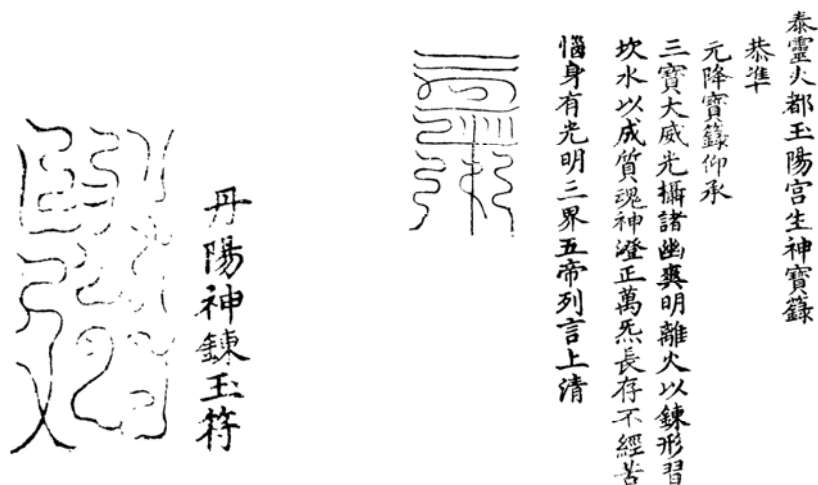 泰靈火都玉陽宮生神寶籙
恭準
元降寶籙仰承
三寶大威光攝諸幽爽明離火以鍊形習
坎水以成質魂神澄正萬炁長存不經苦
惱身有光明三界五帝列言上清
丹陽神鍊玉符